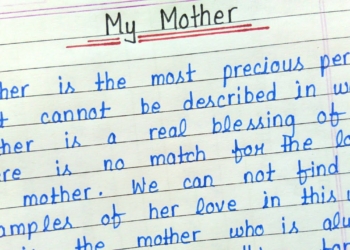 My Mother
her is the most precious per
t cannot be described in w
her is a real blessing of
ere is no match for the lo
mother. We can not find
amples of her love in this
is the mother who is alw